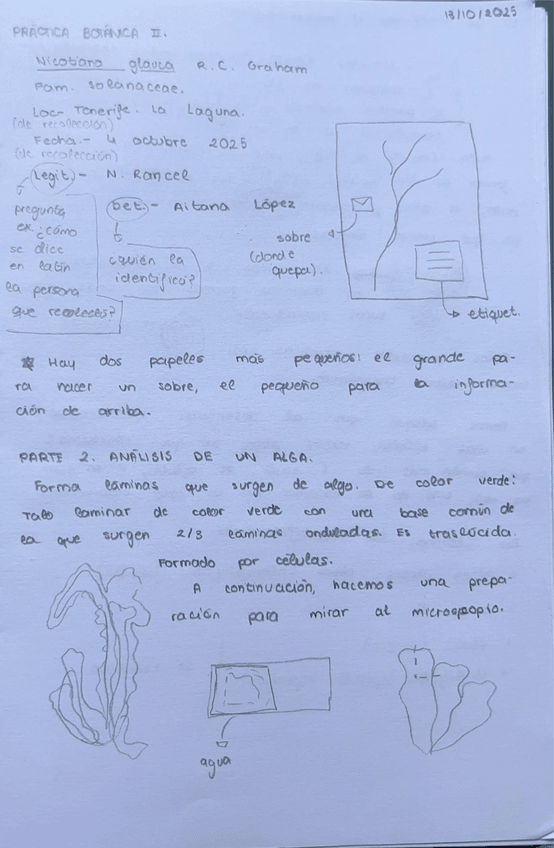 13/10/2025
PRÁCTICA BOTÁNICA II.
Nicotiana glauca R.C. Graham
Fam. Solanaceae.
Loc- Tenerife. La Laguna.
(de recolección)
Fecha.- 4 octubre 2025
(de recolección)
Legit)- N. Rancel
pregunta
ex: ¿cómo
se dice
en latín
la persona
que recolectó?
Det.- Aitana López
¿quién la
identificó?
sobre
(donde
quepa).
etiquet.
* Hay dos papeles más pequeños: el grande pa-
ra hacer un sobre, el pequeño para la informa-
ción de arriba.
PARTE 2. ANÁLISIS DE UN ALGA.
Forma láminas que surgen de algo. De color verde:
Talo laminar de color verde con una base común de
la que surgen 2/3 láminas onduladas. Es traslúcida.
Formado por células.
A continuación, hacemos una prepa-
ración para mirar al microspopio.
agua